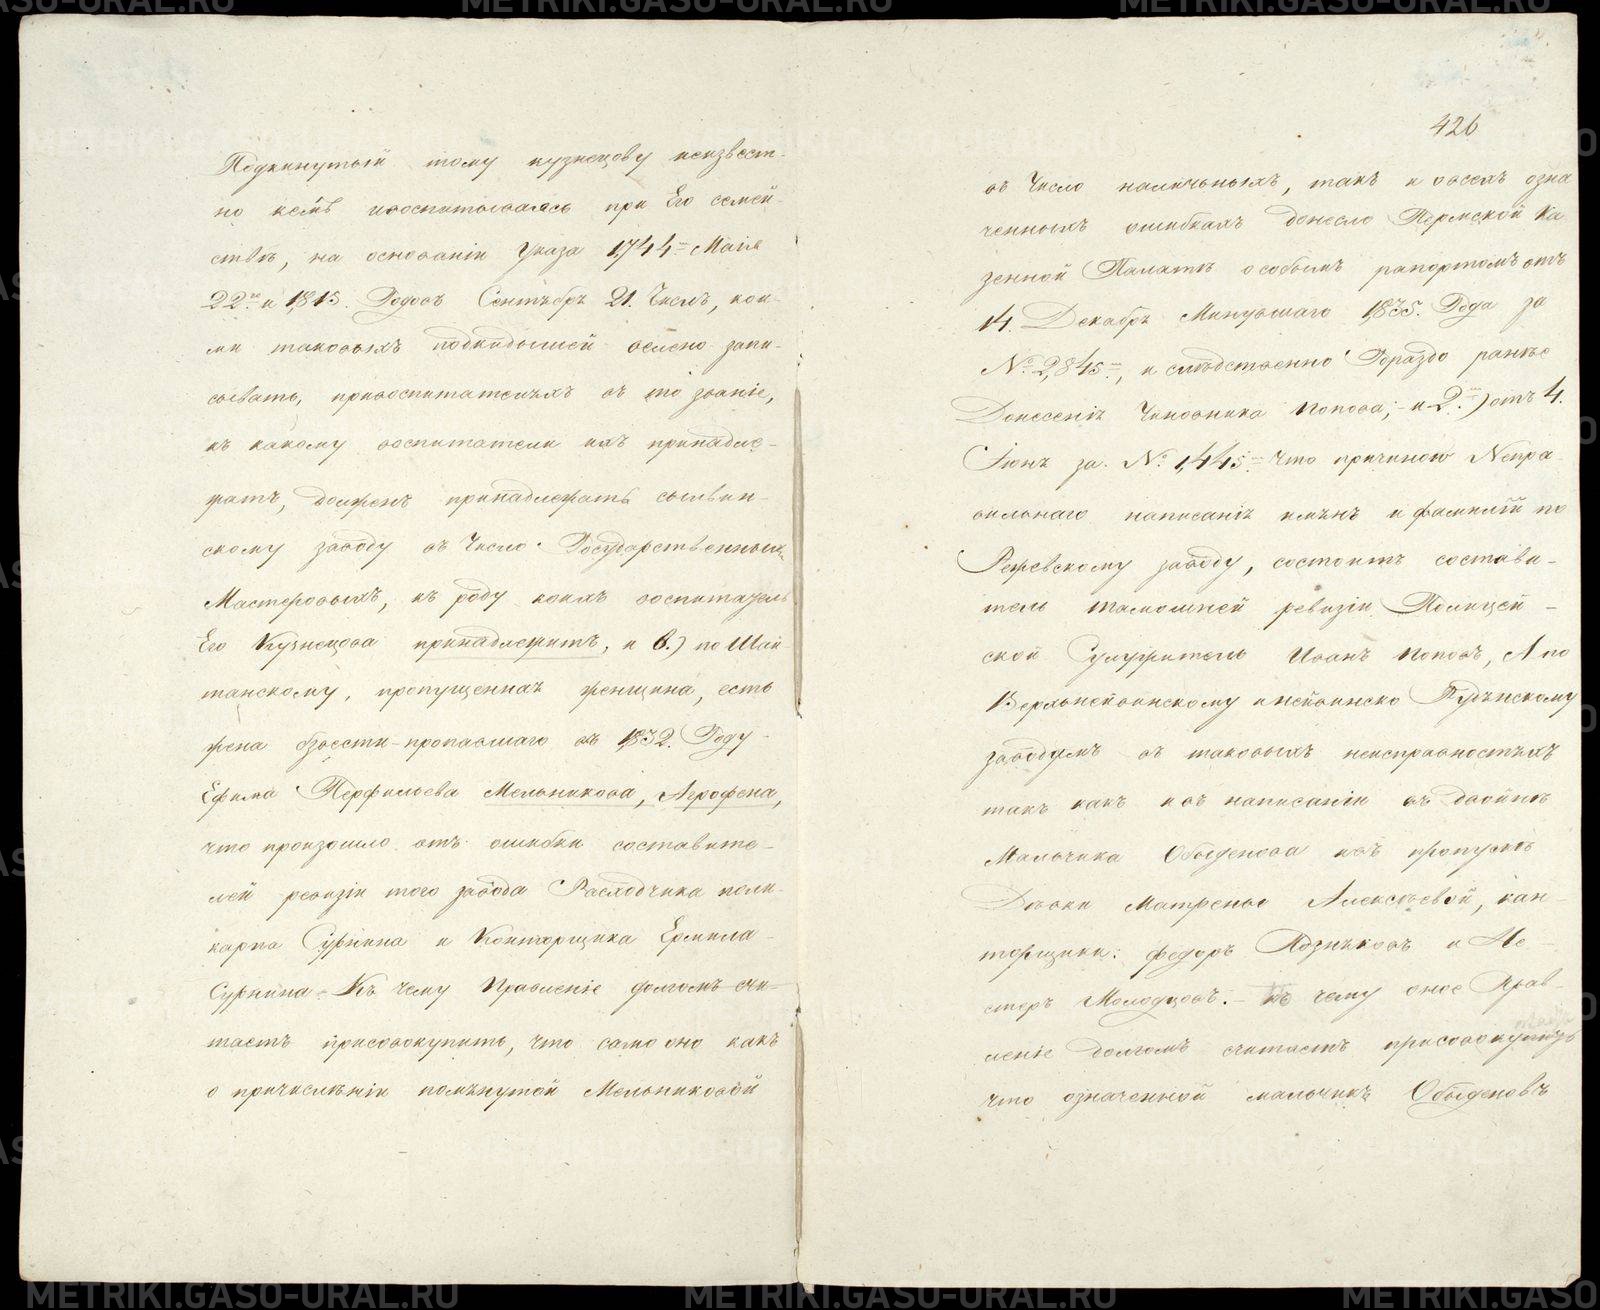 Подкинутый тому кузнецову неизвест-
но кемъ и воспитывался при Его семей-
ствѣ, на основаніи Указа 1744 Маія
22го и 1815. Годовъ Сентября 21. Числъ, кои-
ми таковыхъ подкидышей велено запи-
сывать, при воспитателяхъ въ то званіе,
къ какому воспитатели ихъ принадле-
жатъ, долженъ принадлежать сылвин-
скому заводу въ Число Государственныхъ
Мастеровыхъ, къ роду коихъ воспитатель
Его Кузнецовъ принадлежитъ, и 6.) по Шай-
танскому, пропущенная женщина, есть
жена безвести-пропавшаго въ 1832. Году
Ефима Перфильева Мельникова, Агрофена,
что произошло отъ ошибки составите-
лей ревизіи того завода Расходчика поли-
карпа Сурнина и Конторщика Ермила
Сурнина. Къ чему Правленіе долгомъ счи-
таетъ присовокупить, что само оно какъ
о причисленіи помянутой Мельниковой
426
въ Число наличныхъ, такъ и о всехъ озна
ченныхъ ошибкахъ донесло Пермской Ка
зенной Палатѣ особымъ рапортомъ отъ
14. Декабря Минувшаго 1835. Года за
№ 2,845м, и следственно Гораздо ранѣе
Донесенія Чиновника Попова; и 2.) отъ 4.
Іюня за № 1,445. Что причиною Непра
вильнаго написанія имянъ и фамилій по
Режевскому заводу, состоитъ состави-
тель тамошней ревизіи Полицей-
ской Служитель Иванъ Поповъ, А по
Верхънейвинскому и нейвинско Рудянскому
заводамъ въ таковыхъ неисправностяхъ
такъ какъ и въ написаніи въ двойнѣ
Мальчика Обыденова и въ пропускѣ
Дѣвки Матрены Алексѣевой, кан-
торщики: федоръ Поздняковъ и Не-
стеръ Молодцовъ. Къ чему оное Прав-
леніе долгомъ считаетъ присовокупить
что означенной мальчикъ Обыденовъ
METRIKI.GASO-URAL.RU